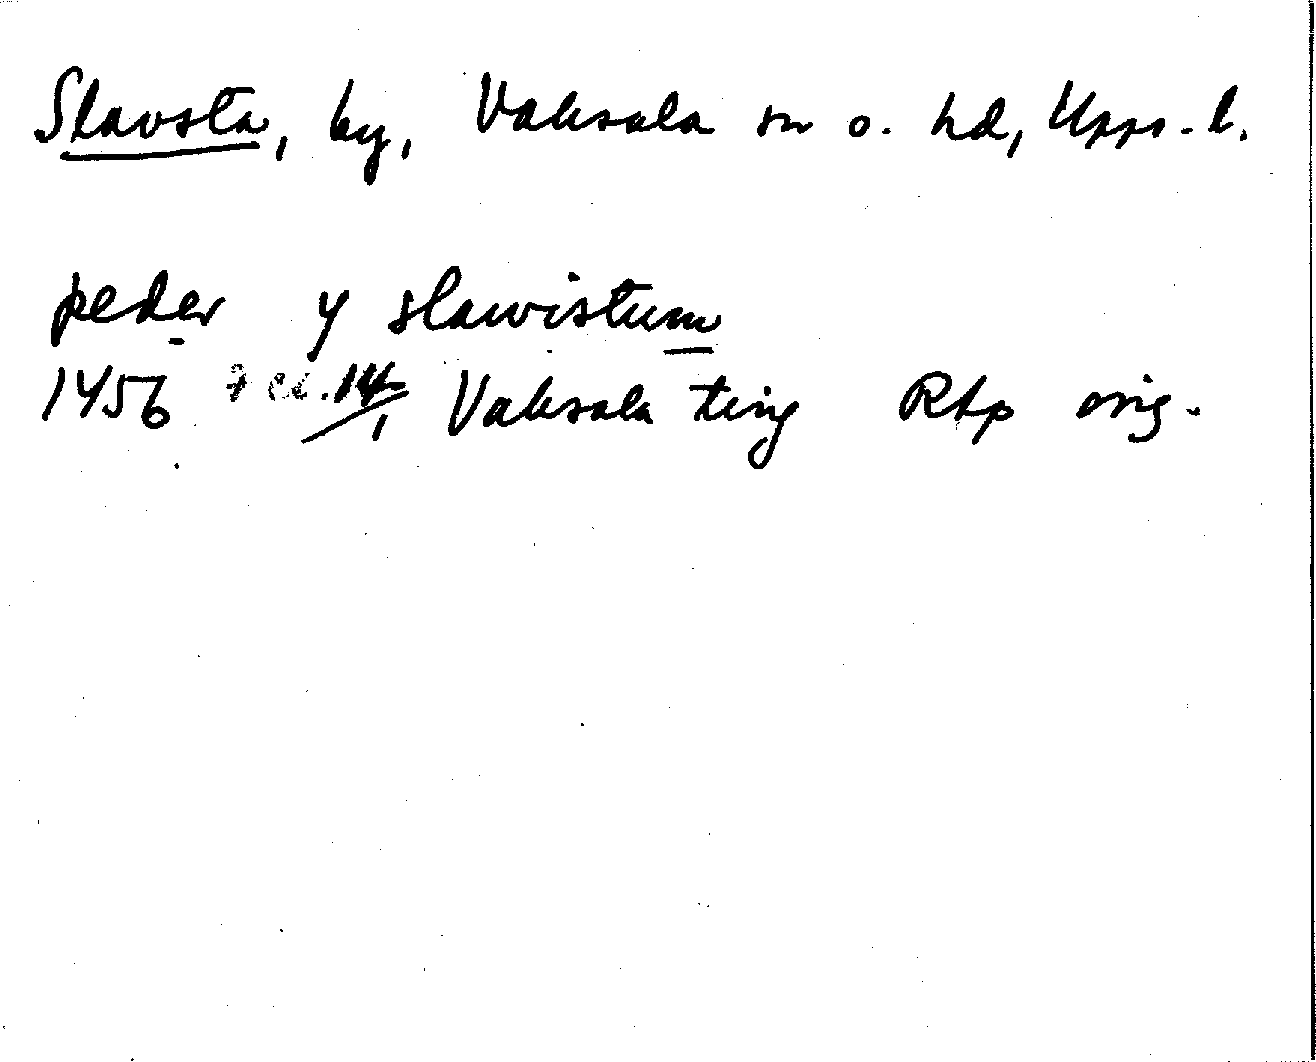 Slavsta, by, Vaksala sn o. hd, Upps. l.
peder y slawistum
1456 14/1 Vaksala ting Rap orig.